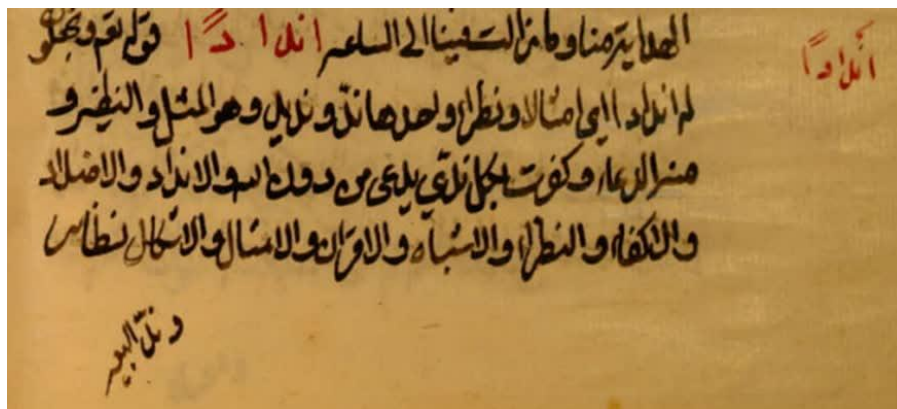 الهدايتر منا وكان السفينا الى الساعر اندادًا قوله تعو وتجعلون
اندادًا
له اندادا اي امثالا ونظراء واحدها ندّ ونديد وهو المثل والنظير و
منه الدعاء وكفرت بكل ندّ يدعى من دون الله والانداد والاضداد
والاكفاء والنظراء والاشباه والاقران والامثال والاشكال نظاير
وندّ البعير